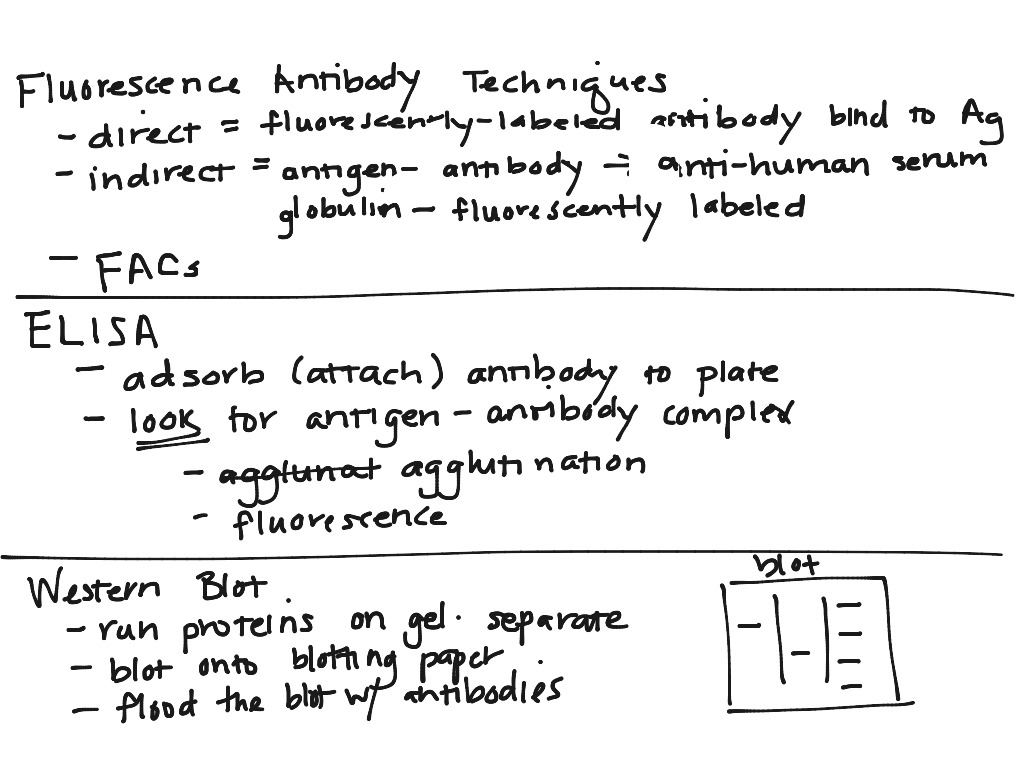 Fluorescence Antibody Techniques
- direct = fluorescently-labeled antibody bind to Ag
- indirect = antigen - antibody - anti-human serum
globulin - fluorescently labeled
- FACs
ELISA
- adsorb (attach) antibody to plate
- look for antigen - antibody complex
- agglunat agglutination
- fluorescence
Western Blot
- run proteins on gel. separate
- blot onto blotting paper
- flood the blot w/ antibodies
blot